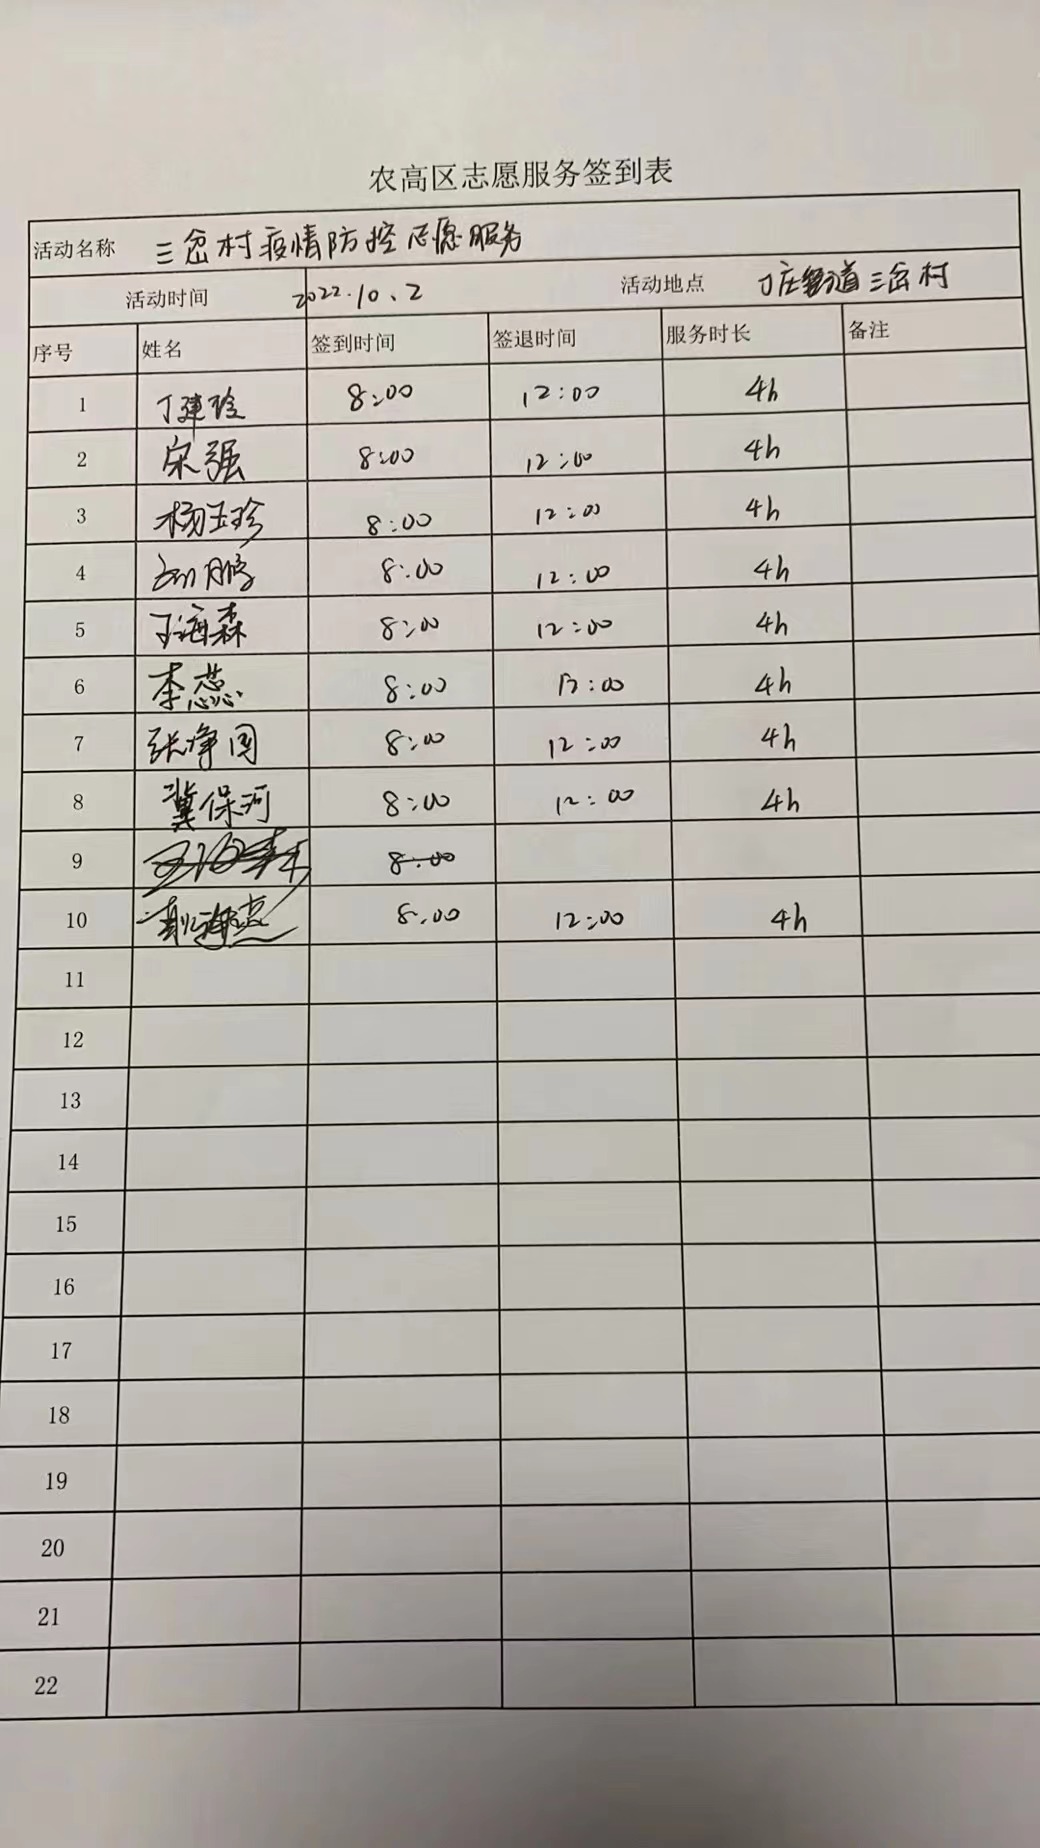 农高区志愿服务签到表
活动名称 三岔村疫情防控志愿服务
活动时间 2022.10.2 活动地点 丁庄街道三岔村
序号 姓名 签到时间 签退时间 服务时长 备注
1 丁建玲 8:00 12:00 4h
2 宋强 8:00 12:00 4h
3 杨玉珍 8:00 12:00 4h
4 刘鹏 8:00 12:00 4h
5 丁海森 8:00 12:00 4h
6 李蕊 8:00 12:00 4h
7 张净国 8:00 12:00 4h
8 冀保河 8:00 12:00 4h
9 8:00
10 8:00 12:00 4h
11
12
13
14
15
16
17
18
19
20
21
22